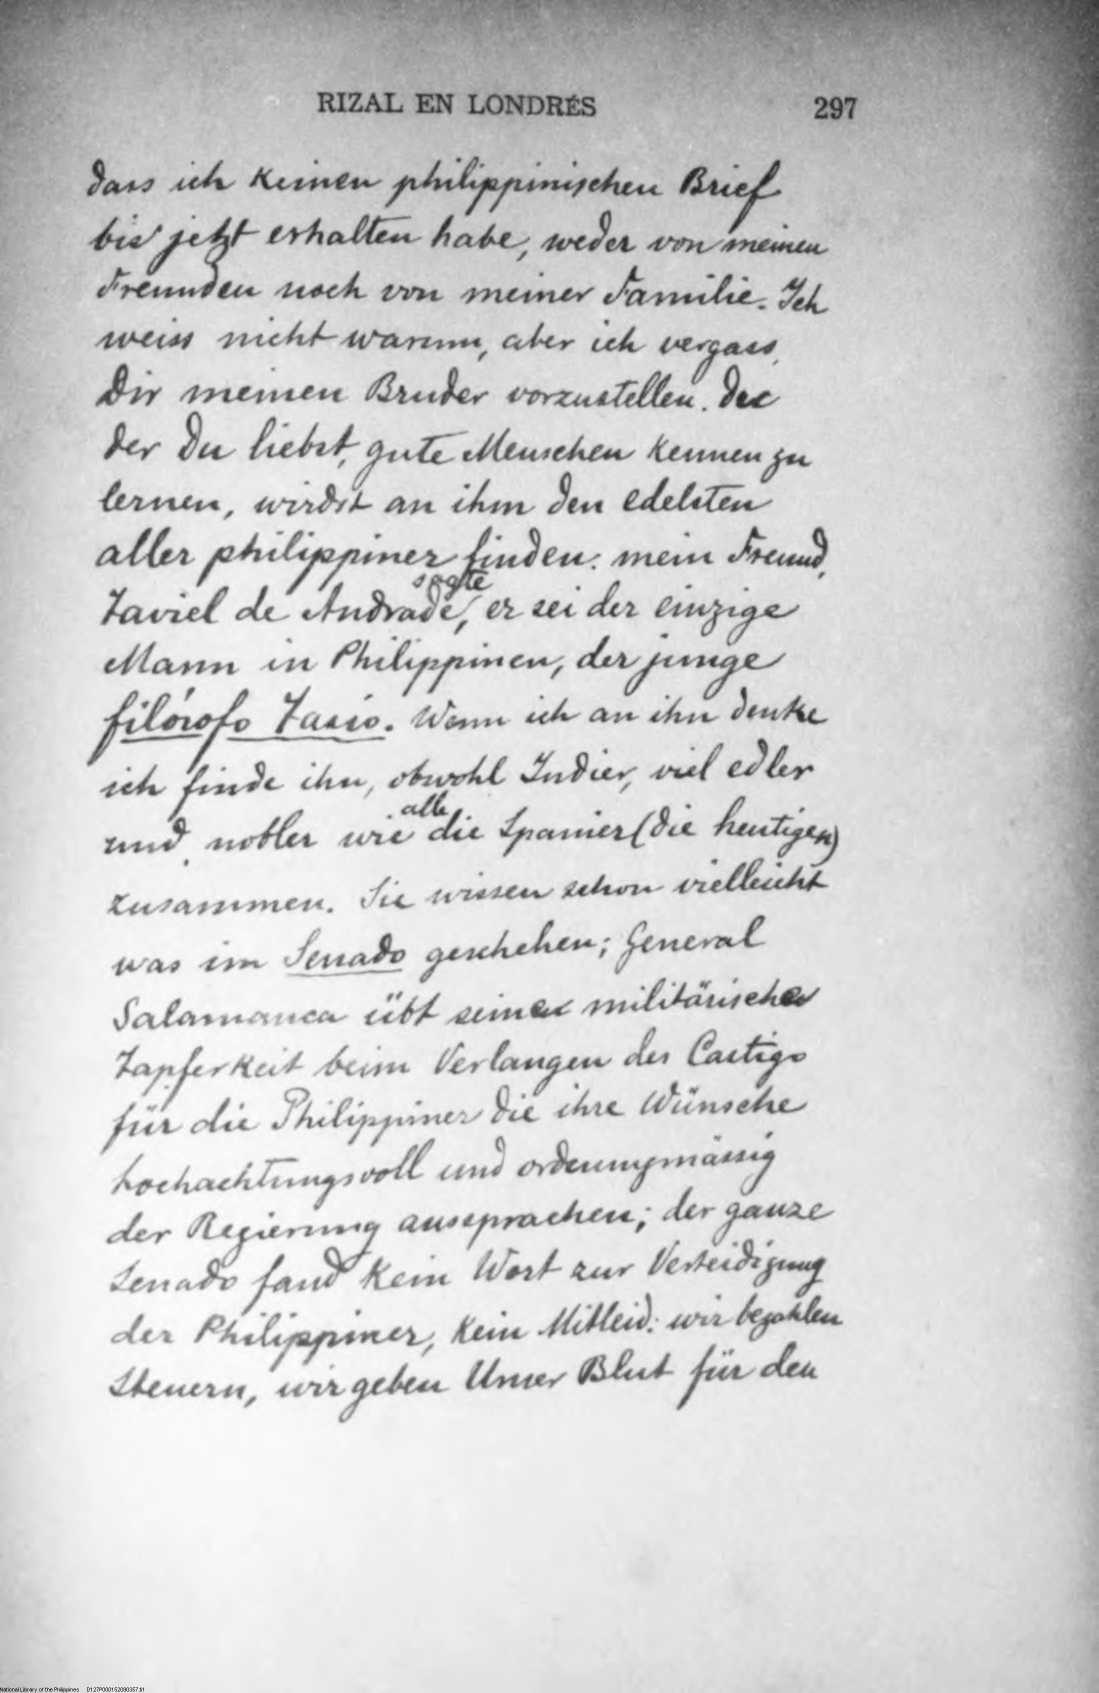 RIZAL EN LONDRÉS 297
dass ich keinen philippinischen Brief
bis jetzt erhalten habe, weder von meinen
Freunden noch von meiner Familie. Ich
weiss nicht warum, aber ich vergass,
Dir meinen Bruder vorzustellen. Du
der Du liebst, gute Menschen kennen zu
lernen, wirdst an ihm den edelsten
aller philippiner finden: mein Freund,
sagte
Taviel de Andrade, er sei der einzige
Mann in Philippinen, der junge
filósofo Tasio. Wenn ich an ihn denke
ich finde ihn, obwohl Indier, viel edler
alle
und nobler wie die Spanier (die heutigen)
zusammen. Sie wissen schon vielleicht
was im Senado geschehen; General
Salamanca übt seine militärische
Tapferkeit beim Verlangen des Castigo
für die Philippiner die ihre Wünsche
hochachtungsvoll und ordnungmässig
der Regierung aussprachen; der ganze
Senado fand kein Wort zur Verteidigung
der Philippiner, kein Mitleid: wir bezahlen
Steuern, wir geben Unser Blut für den
National Library of the Philippines